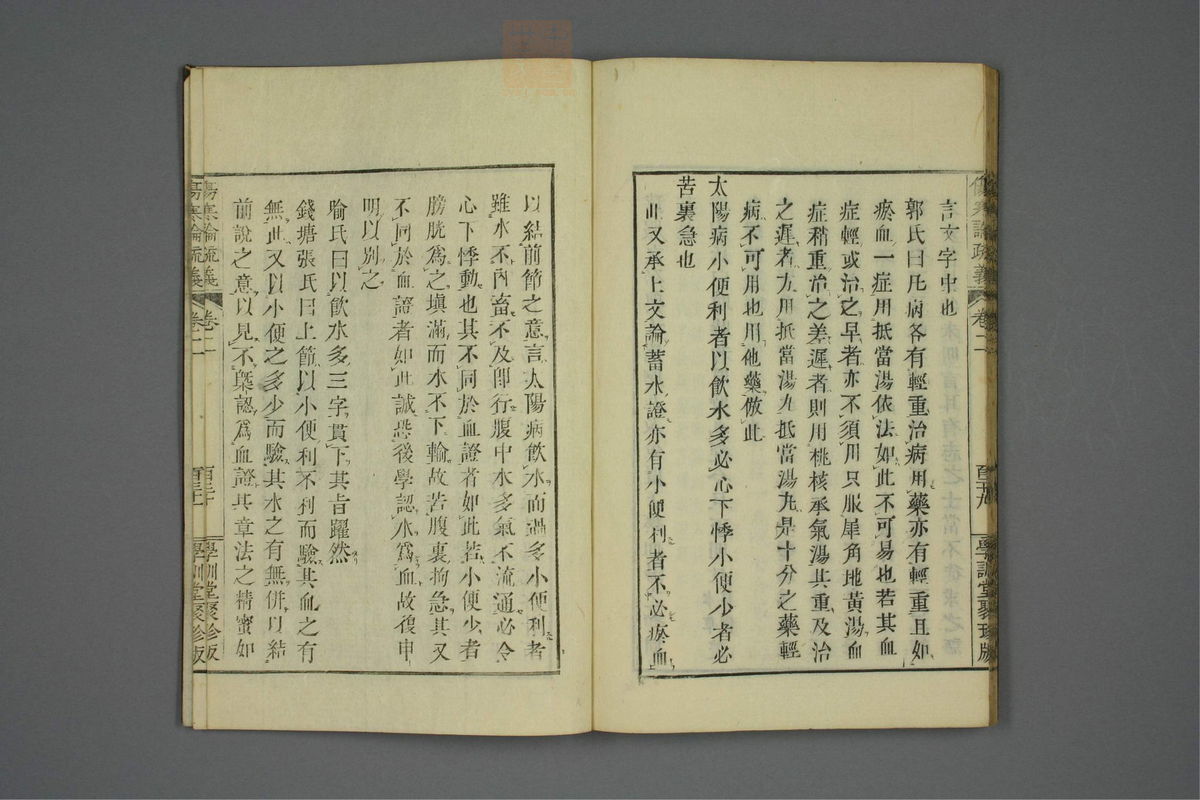 言文字中也
郭氏曰凡病各有輕重治病用藥亦有輕重且如
瘀血一症用抵當湯依法如此不可易也若其血
症輕或治之早者亦不須用只服犀角地黃湯血
症稍重治之差遲者則用桃核承氣湯其重及治
之遲者方用抵當湯丸抵當湯丸是十分之藥輕
病不可用也用他藥倣此
太陽病小便利者以飲水多必心下悸小便少者必
苦裏急也
此又承上文論蓄水證亦有小便利者不必瘀血
傷寒論疏義
卷二
學訓堂聚珍版
以結前節之意言太陽病飲水而過多小便利者
雖水不內畜不及卽行腹中水多氣不流通必令
心下悸動也其不同於血證者如此若小便少者
膀胱爲之塡滿而水不下輸故苦腹裏拘急其又
不同於血證者如此誠恐後學認水爲血故復申
明以別之
喻氏曰以飲水多三字貫下其旨躍然
錢塘張氏曰上節以小便利不利而驗其血之有
無此又以小便之多少而驗其水之有無併以結
前說之意以見不槩認爲血證其章法之精蜜如
傷寒論疏義
卷二
學訓堂聚珍版